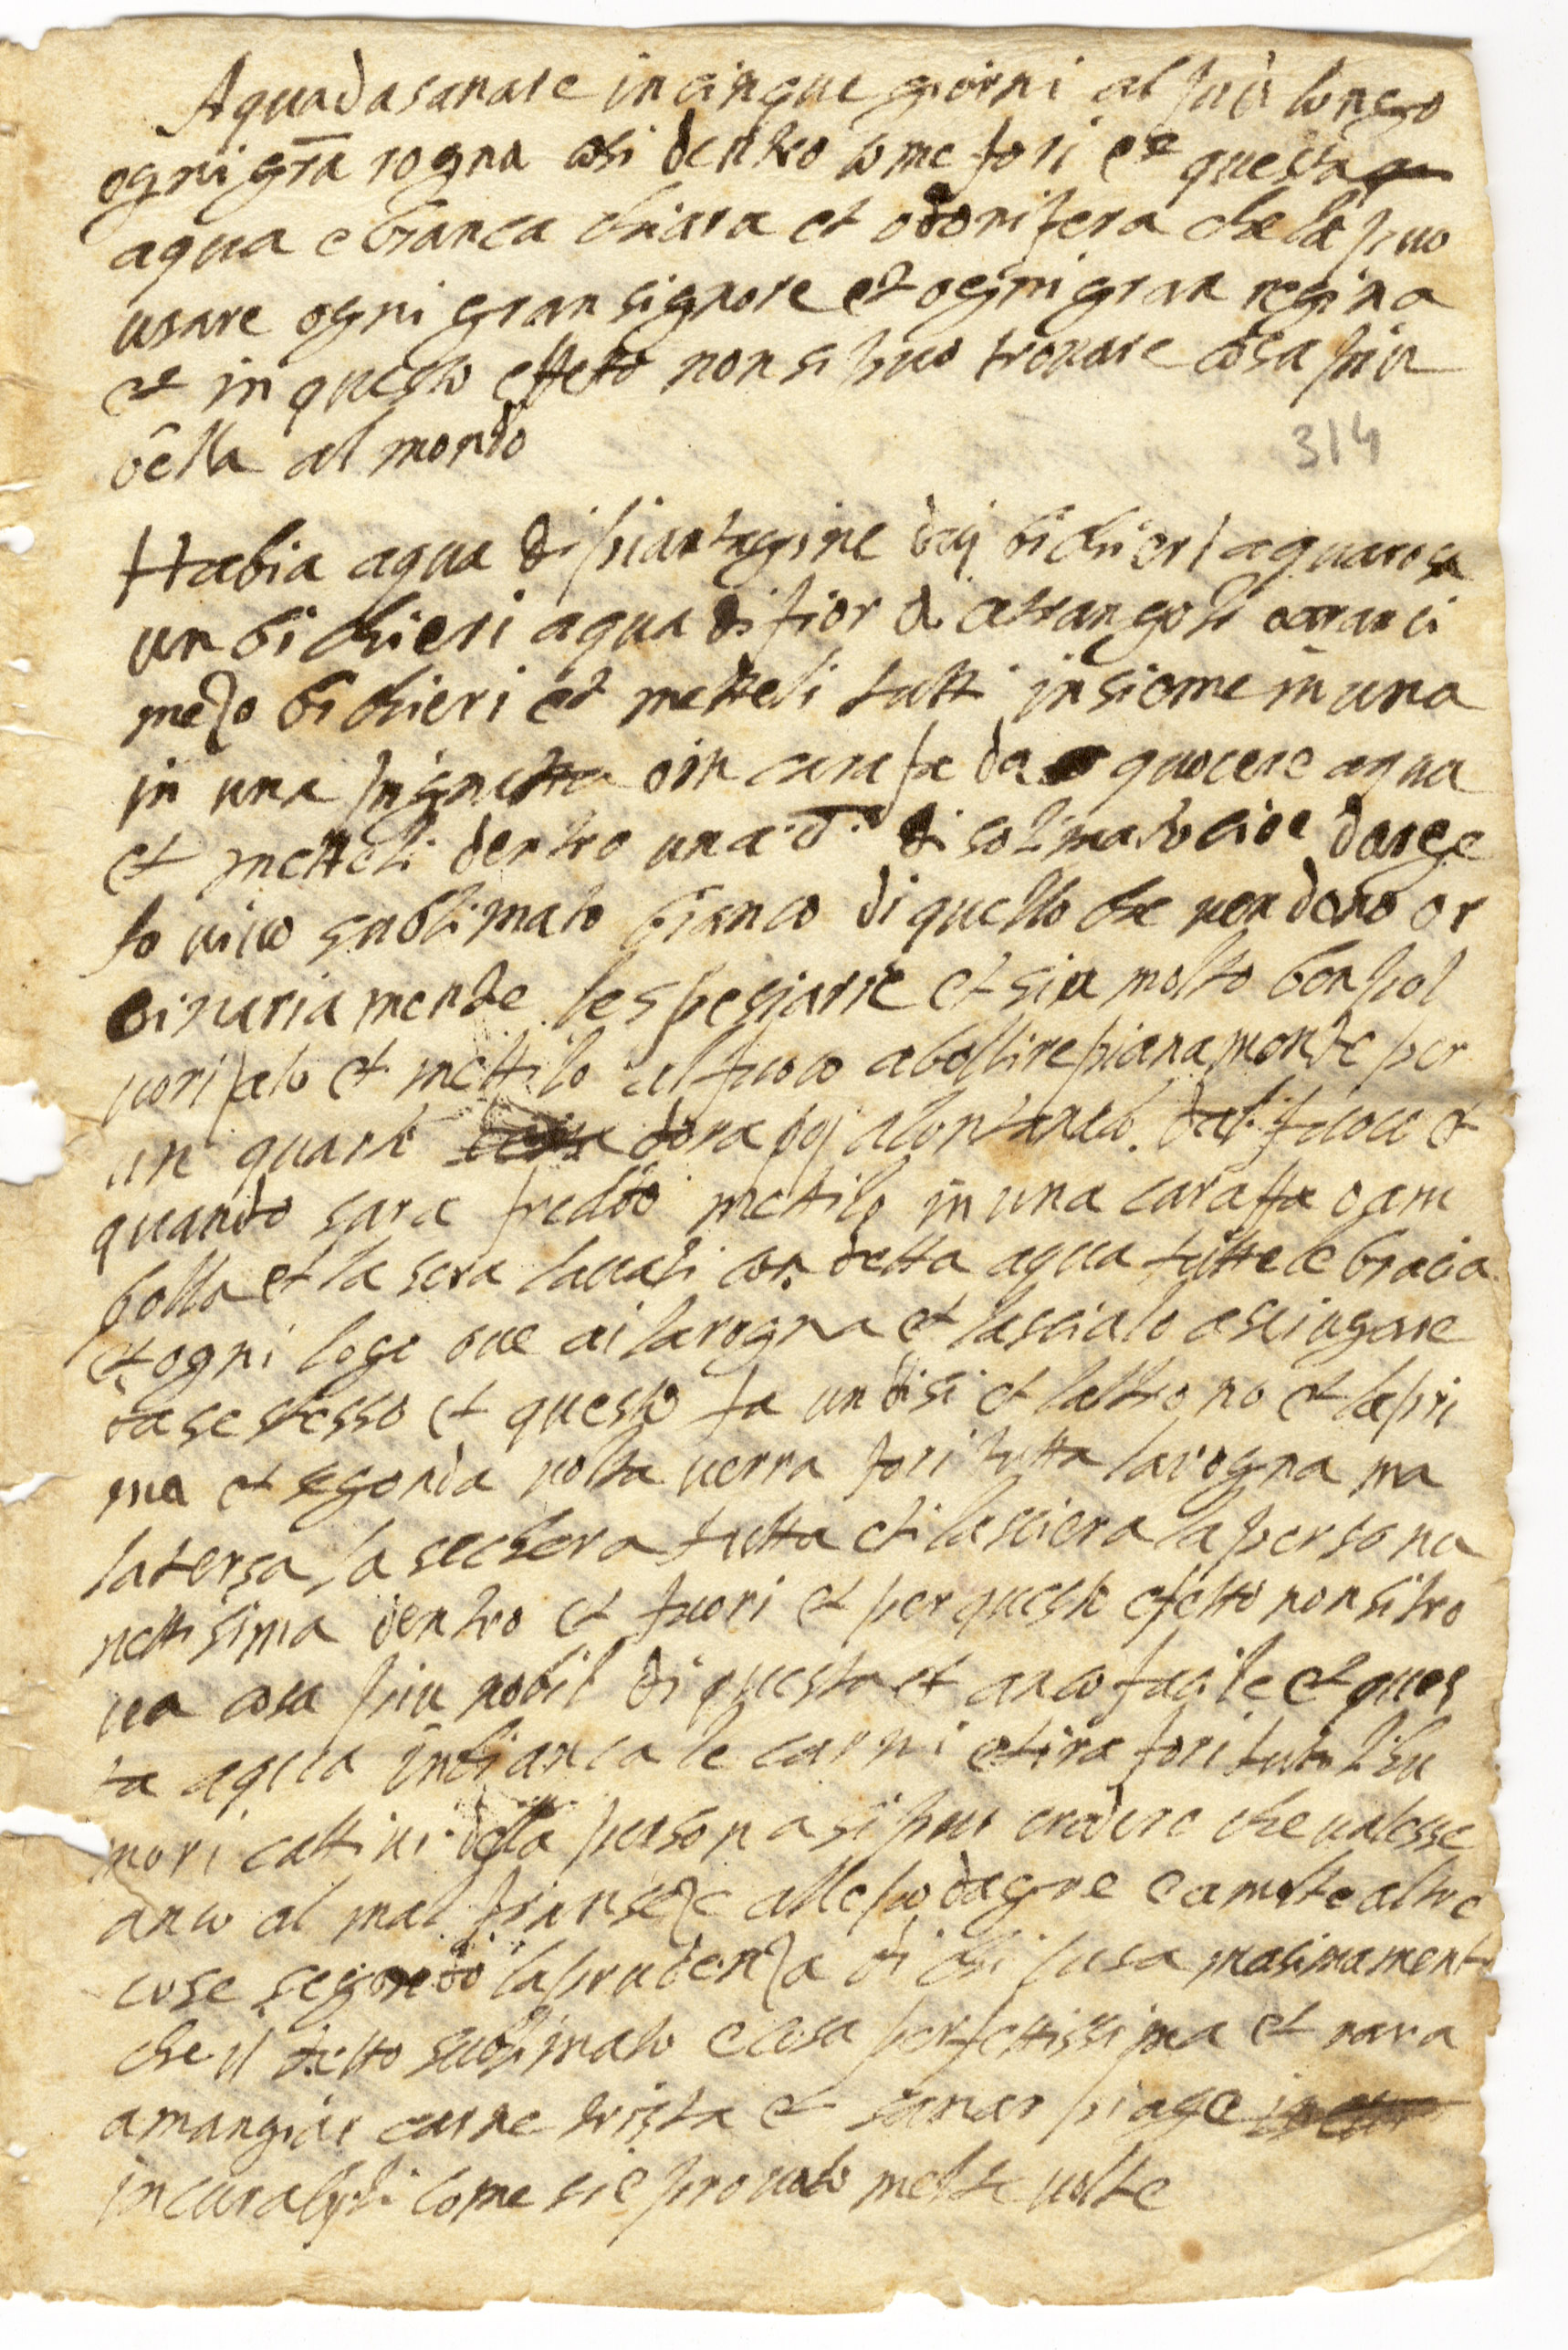 Aqua da sanare in cinque giorni al più longo
ogni grã rogna cosi dentro come fori et questa
aqua e bianca chiara et odorifera che la puo
usare ogni gran signore et ogni gran regina
et in questo effetto non si puo trovare cosa piu
bella al mondo
314
Habia aqua di piantagine doij bichieri aqua rosa
un bichieri aqua di fior di cetrangoli o aranci
mezo bichieri et metteli tutti insieme in una
in una pignatta o in carafa da quocere aqua
et metteli dentro una di solimato cioe darge
to vivo sublimato bianco di quello che vendeno or
dinariamente le spesiarie et sia molto ben pol
vorisato et mettilo al fuoco a bollire pianamente per
un quarto dora poi alontanalo dal fuoco et
quando sara freddo mettilo in una caraffa o am
polla et la sera lavati con detta aqua tutte le bracia
et ogni logo ove ai la rogna et lascialo asciugare
da se stesso et questo fa un di si et laltro no et la pri
ma et segonda volta verra fori tutta la rogna ma
la tersa la sechera tutta et lasciera la persona
nettisima dentro et fuori et per questo efetto non si tro
va cosa piu nobil di questa et anco facile et ques
ta aqua inbianca le carni et tira fori tutti li hu
mori cattivi della persona si puo credere che valesse
anco al mal franseze alle podagre e a molte altre
cose segondo la prudenza di chi lusa masimamente
che il detto sublimato e cosa perfettissima et rara
a mangiar carne trista et sanar piage
incurabili come si e provato molte volte